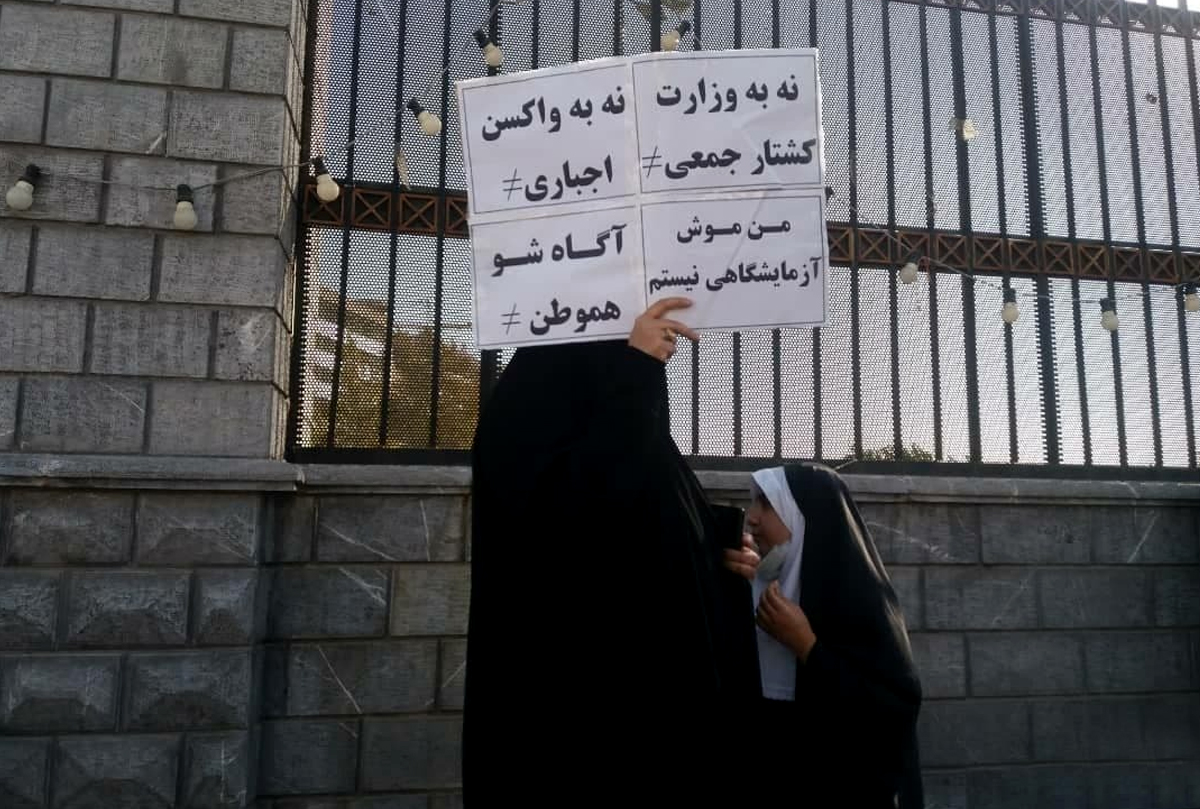 نه به وزارت
کشتار جمعی#
نه به واکسن
اجباری#
من موش
آزمایشگاهی نیستم
آگاه شو
هموطن #